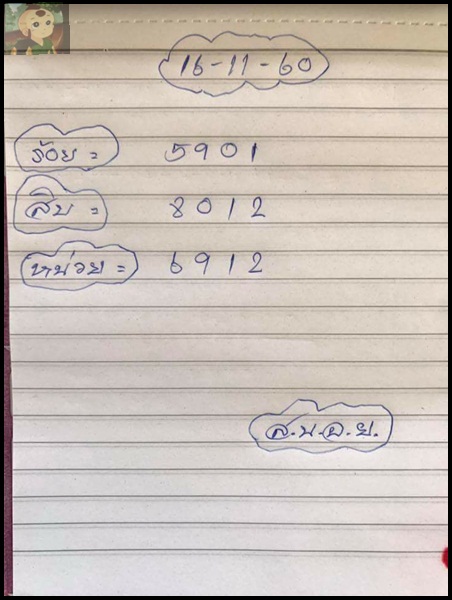 16-11-60
ร้อย = 5901
สิบ = 8012
หน่วย = 6912
ส.น.อ.ย.